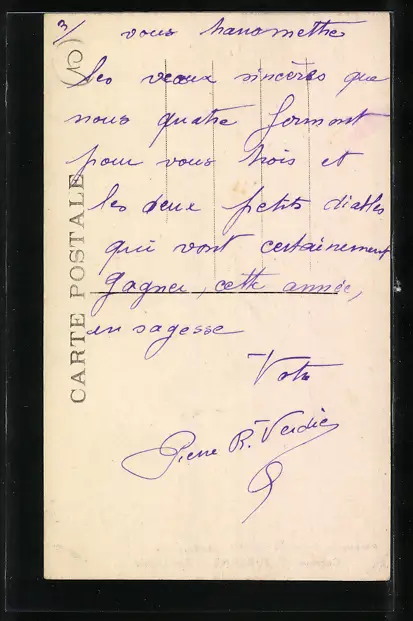 3/ vous transmettre
les vœux sincères que
nous quatre formont
pour vous trois et
les deux petits diables
qui vont certainement
gagner, cette année,
en sagesse
Votre
Pierre R. Verdié
CARTE POSTALE